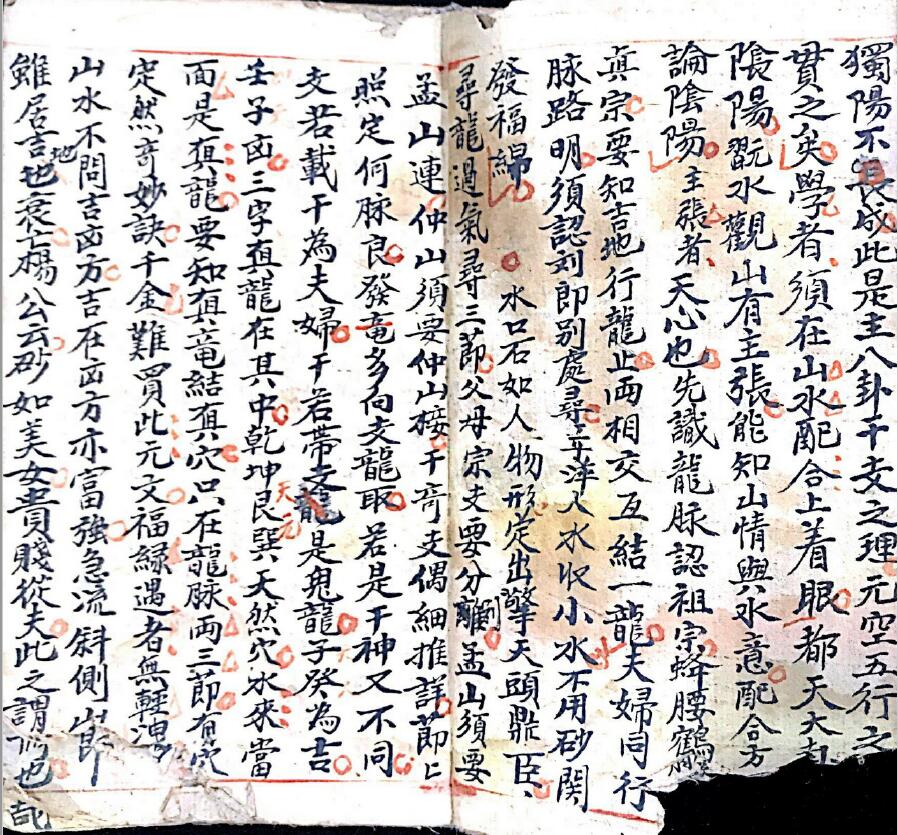 獨陽不長成此是主八卦干支之理元空五行之
貫之矣學者須在山水配合上着眼都天大
陰陽翫水觀山有主張能知山情與水意配合方
論陰陽主張者天心也先識龍脉認祖宗蜂腰鶴
真宗要知吉地行龍止両相交互結一龍夫婦同行
脉路明須認刘郎别處尋平洋大水収小水不用砂関
發福綿 水口石如人物形定出擎天頭鼎臣
尋龍過氣尋三節父母宗支要分離孟山須要
孟山連仲山須要仲山接干奇支偶細推詳節〻
照定何脉良發竜多向支龍取若是干神又不同
支若載干為夫婦干若帶支龍是鬼龍子癸為吉
壬子凶三字真龍在其中乾坤艮巽天然穴水來當
面是真龍要知真竜結真穴只在龍脉両三節有穴
定然奇妙訣千金難買此元文福緑遇者無輕洩
山水不問吉凶方吉在凶方亦富強急流斜側山
雖居吉地也衰亡楊公云砂如美女貴賤從夫此之謂也